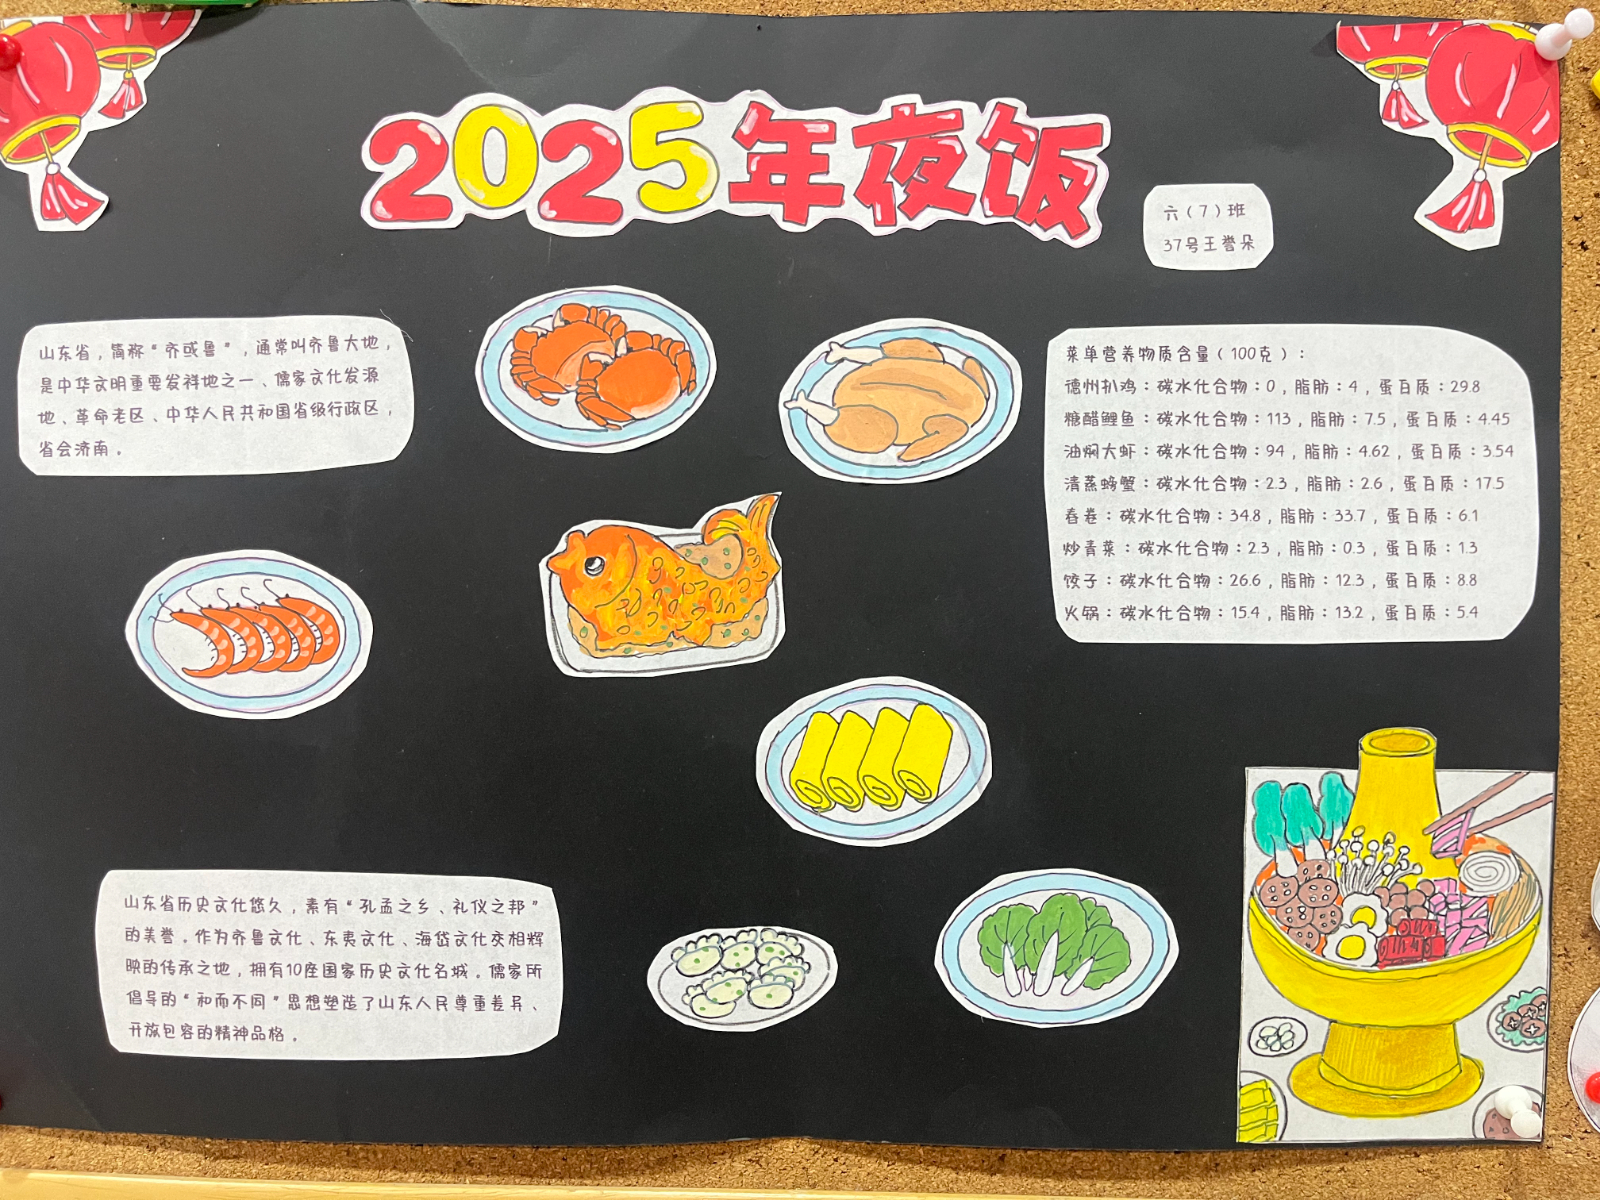 2025年夜饭
六（7）班
37号王誉朵
山东省，简称“齐或鲁”，通常叫齐鲁大地，
是中华文明重要发祥地之一、儒家文化发源
地、革命老区、中华人民共和国省级行政区，
省会济南。
菜单营养物质含量（100克）：
德州扒鸡：碳水化合物：0，脂肪：4，蛋白质：29.8
糖醋鲤鱼：碳水化合物：113，脂肪：7.5，蛋白质：4.45
油焖大虾：碳水化合物：94，脂肪：4.62，蛋白质：3.54
清蒸螃蟹：碳水化合物：2.3，脂肪：2.6，蛋白质：17.5
春卷：碳水化合物：34.8，脂肪：33.7，蛋白质：6.1
炒青菜：碳水化合物：2.3，脂肪：0.3，蛋白质：1.3
饺子：碳水化合物：26.6，脂肪：12.3，蛋白质：8.8
火锅：碳水化合物：15.4，脂肪：13.2，蛋白质：5.4
山东省历史文化悠久，素有“孔孟之乡、礼仪之邦”
的美誉。作为齐鲁文化、东夷文化、海岱文化交相辉
映的传承之地，拥有10座国家历史文化名城。儒家所
倡导的“和而不同”思想塑造了山东人民尊重差异、
开放包容的精神品格。